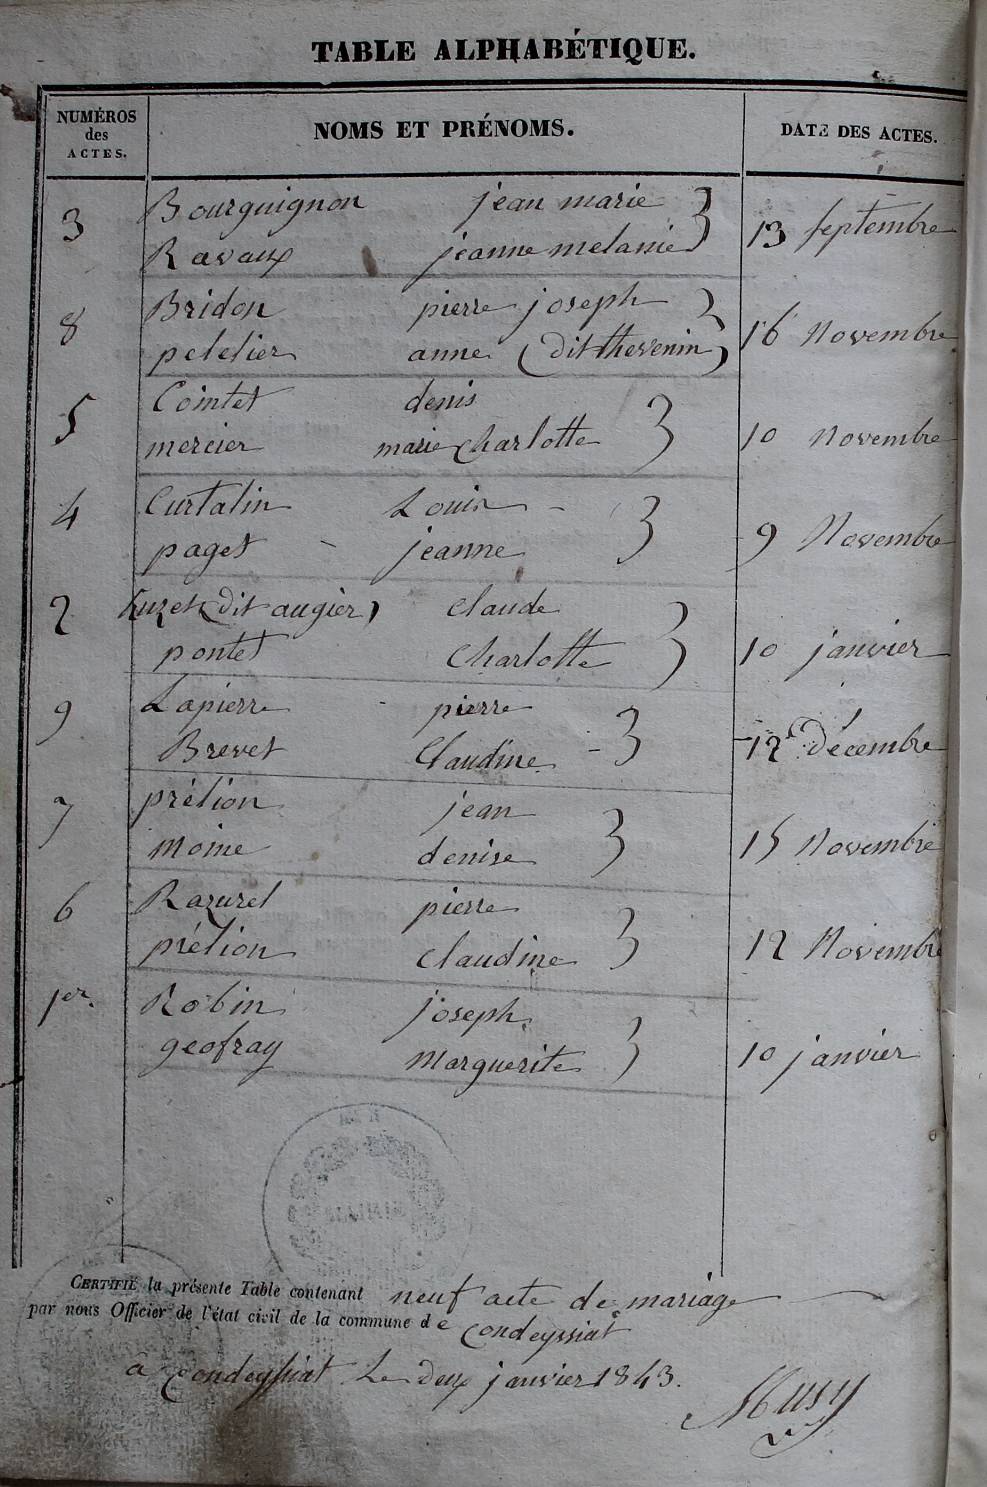 TABLE ALPHABÉTIQUE.
NUMÉROS des ACTES. NOMS ET PRÉNOMS. DATE DES ACTES.
3 Bourguignon jean marie
Ravaux jeanne melanie 13 septembre
8 Bridon pierre joseph
peletier anne (dit thevenin) 16 Novembre
5 Cointet denis
mercier marie charlotte 10 novembre
4 Curtalin Louis
paget jeanne 9 Novembre
2 (dit augier) claude
pontet Charlotte 10 janvier
9 Lapierre pierre
Brevet Claudine 12 Décembre
7 prélion jean
Moine denise 15 Novembre
6 Razurel pierre
prélion claudine 12 Novembre
1er. Robin joseph
geofray Marguerite 10 janvier
CERTIFIÉ la présente Table contenant neuf acte de mariage
par nous Officier de l'état civil de la commune de Condeyssiat
a Condeyssiat Le deux janvier 1843.
Musy